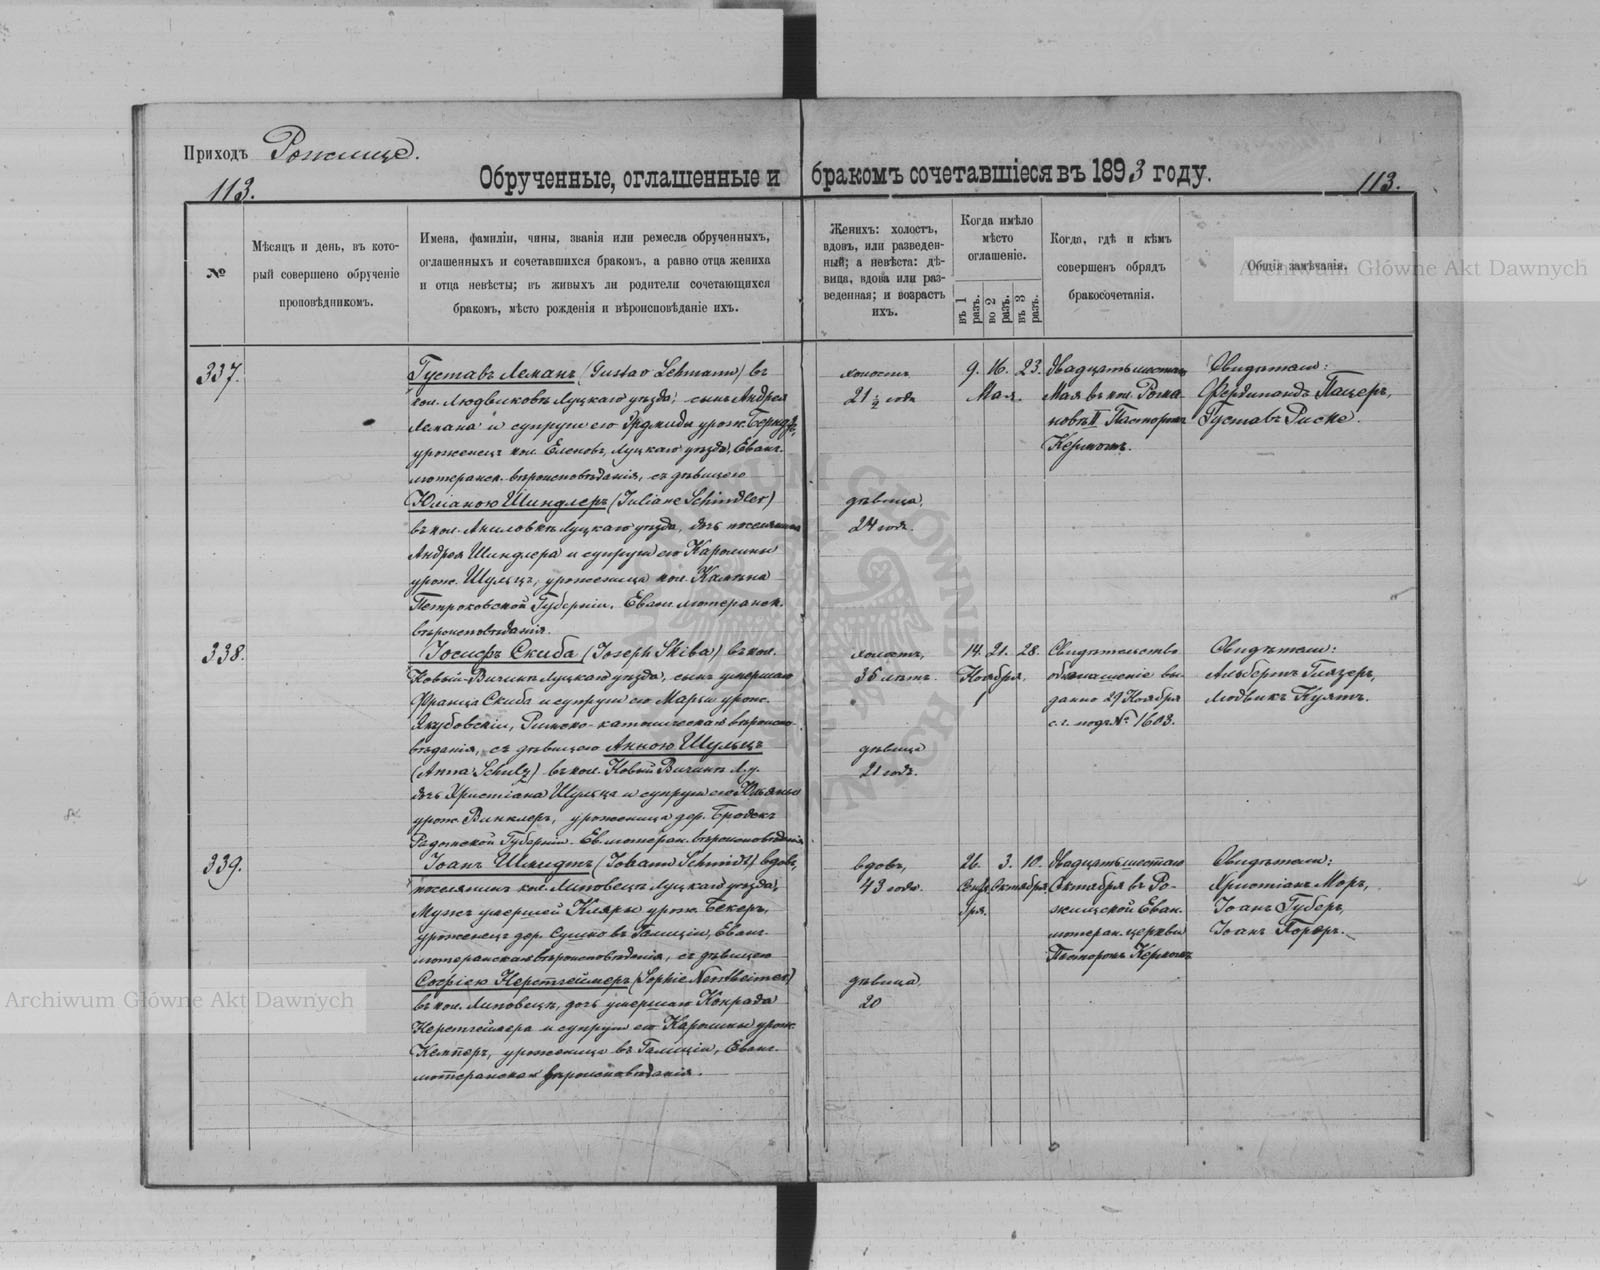 Приходъ Рожище.
113.
Обрученные, оглашенные и бракомъ сочетавшіеся въ 1893 году.
113.
№
Мѣсяцъ и день, въ кото-
рый совершено обрученіе
проповѣдникомъ.
Имена, фамиліи, чины, званія или ремесла обрученныхъ,
оглашенныхъ и сочетавшихся бракомъ, а равно отца жениха
и отца невѣсты; въ живыхъ ли родители сочетающихся
бракомъ, мѣсто рожденія и вѣроисповѣданіе ихъ.
Женихъ: холостъ,
вдовъ, или разведен-
ный; а невѣста: дѣ-
вица, вдова или раз-
веденная; и возрастъ
ихъ.
Когда имѣло
мѣсто
оглашеніе.
въ 1 разъ.
во 2 разъ.
въ 3 разъ.
Когда, гдѣ и кѣмъ
совершенъ обрядъ
бракосочетанія.
Общія замѣчанія.
Archiwum Główne Akt Dawnych
337.
Густавъ Леманъ (Gustav Lehmann) въ
кол. Людвиковкѣ Луцкаго уѣзда, сынъ Андрея
Лемана и супруги его урож.
уроженецъ кол. Еленовъ, Луцкаго уѣзда, Еванг.
лютеранск. вѣроисповѣданія, съ дѣвицею
Юліаною Шиндлеръ (Juliane Schindler)
въ кол. Луцкаго уѣзда, дочь поселянина
Андрея Шиндлера и супруги его Каролины
урож. Шульцъ, уроженица кол.
Петроковской Губерніи, Еванг. лютеранск.
вѣроисповѣданія.
холостъ
21 ½ года
дѣвица,
24 года.
9. 16. 23.
Мая.
Двадцать шестаго
Мая въ кол. Рома-
новкѣ II Пасторомъ
Кермомъ.
Свидѣтели:
Фердинандъ Пацеръ,
Густавъ Риске.
338.
Іосифъ Скиба (Joseph Skiba) въ кол.
Луцкаго уѣзда, сынъ умершаго
Франца Скиба и супруги его Марьи урож.
Якубовскіи, Римско-католическаго вѣроиспо-
вѣданія, съ дѣвицею Анною Шульцъ
(Anna Schulz) въ кол. Л. у.
дочь Христіана Шульца и супруги его Юліаны
урож. Винклеръ, уроженица дер. Бродекъ
Радомской Губерніи. Ев. лютеран. вѣроисповѣданія.
холостъ,
35 лѣтъ.
дѣвица
21 года.
14. 21. 28.
Ноября.
Свидѣтельство
объ оглашеніе вы-
дано 29 Ноября
с. г. подъ № 1603.
Свидѣтели:
Альбертъ Глязеръ,
Людвикъ Куятъ.
339.
Іоанъ Шмидтъ (Johann Schmidt) вдовъ,
поселянинъ кол. Липовецъ Луцкаго уѣзда,
Мужъ умершей Клары урож. Бекеръ,
уроженецъ дер. Сушно въ Галиціи, Еванг.
лютеранскаго вѣроисповѣданія, съ дѣвицею
Софіею Нерстгеймеръ (Sophie Nerstheimer)
въ кол. Липовецъ, дочь умершаго Конрада
Нерстгеймера и супруги его Каролины урож.
Кемперъ, уроженица въ Галиціи, Еванг.
лютеранскаго вѣроисповѣданія.
вдовъ,
43 года.
дѣвица
20
26. 3. 10.
Сентя Октября
бря.
Двадцать шестаго
Октября въ Ро-
жищской Еван.
лютеран. церкви
Пасторомъ Кермомъ
Свидѣтели:
Христіанъ Моръ,
Іоанъ Губеръ,
Іоанъ
Archiwum Główne Akt Dawnych